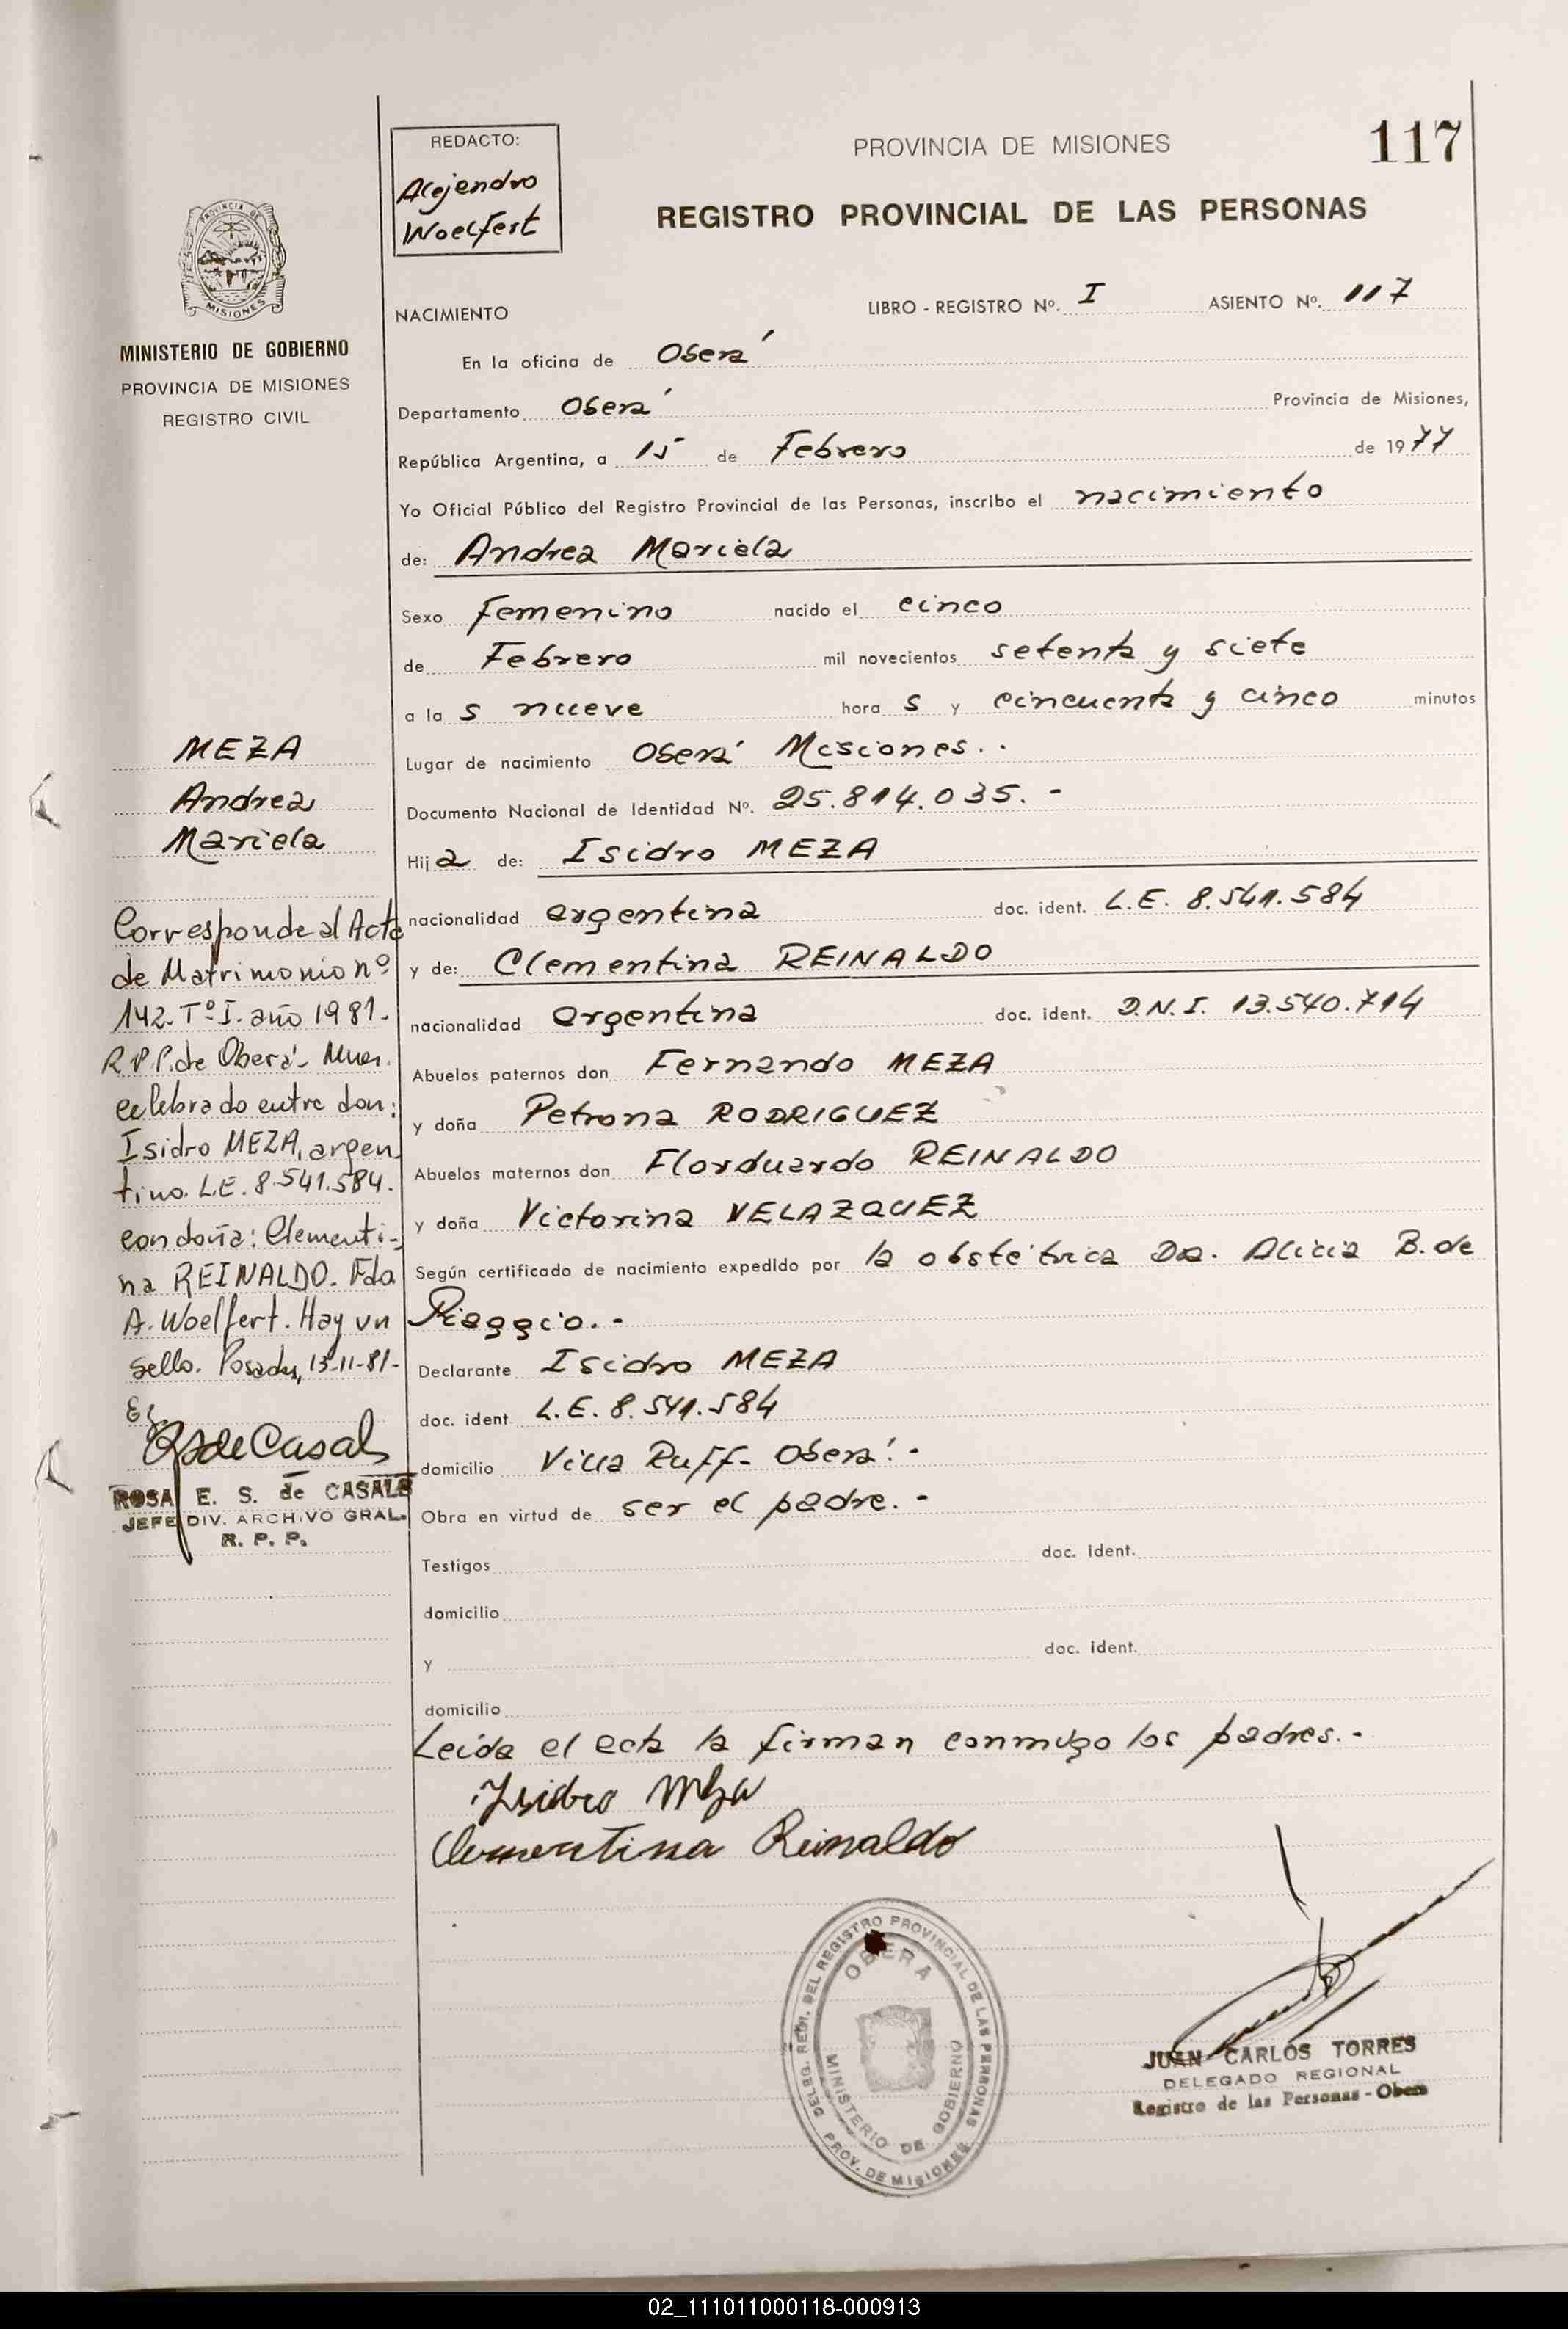 REDACTO:
Alejandro
Woelfert
PROVINCIA DE MISIONES
117
REGISTRO PROVINCIAL DE LAS PERSONAS
PROVINCIA DE
MISIONES
MINISTERIO DE GOBIERNO
PROVINCIA DE MISIONES
REGISTRO CIVIL
NACIMIENTO
LIBRO - REGISTRO Nº. I ASIENTO Nº. 117
En la oficina de Oberá
Departamento Oberá Provincia de Misiones,
República Argentina, a 15 de Febrero de 1977
Yo Oficial Público del Registro Provincial de las Personas, inscribo el nacimiento
de: Andrea Mariela
Sexo femenino nacido el cinco
de Febrero mil novecientos setenta y siete
a la s nueve hora s y cincuenta y cinco minutos
Lugar de nacimiento Oberá Misiones..
Documento Nacional de Identidad Nº. 25.814.035.-
Hija de: Isidro MEZA
nacionalidad argentina doc. ident. L.E. 8.541.584
y de: Clementina REINALDO
nacionalidad argentina doc. ident. D.N.I. 13.540.714
Abuelos paternos don Fernando MEZA
y doña Petrona RODRIGUEZ
Abuelos maternos don Florduardo REINALDO
y doña Victorina VELAZQUEZ
Según certificado de nacimiento expedido por la obstétrica Da. Alicia B. de
Piaggio.-
Declarante Isidro MEZA
doc. ident. L.E. 8.541.584
domicilio Villa Ruff- Oberá.-
Obra en virtud de ser el padre.-
Testigos doc. ident.
domicilio
y doc. ident.
domicilio
Leida el acta la firman conmigo los padres.-
Isidro Meza
Clementina Reinaldo
MEZA
Andrea
Mariela
Corresponde al Acta
de Matrimonio nº
142. Tº I. año 1981.
R.P.P. de Oberá- Mnes.
celebrado entre don:
Isidro MEZA, argen
tino. L.E. 8.541.584.
con doña: Clementi-
na REINALDO. Fdo
A. Woelfert. Hay un
sello. Posadas, 13-11-81-
RSdeCasals
ROSA E. S. de CASALS
JEFE DIV. ARCHIVO GRAL.
R. P. P.
DELEG. REGI. DEL REGISTRO PROVINCIAL DE LAS PERSONAS
OBERA
MINISTERIO DE GOBIERNO
PROV. DE MISIONES
JUAN CARLOS TORRES
DELEGADO REGIONAL
Registro de las Personas - Obera
02_111011000118-000913